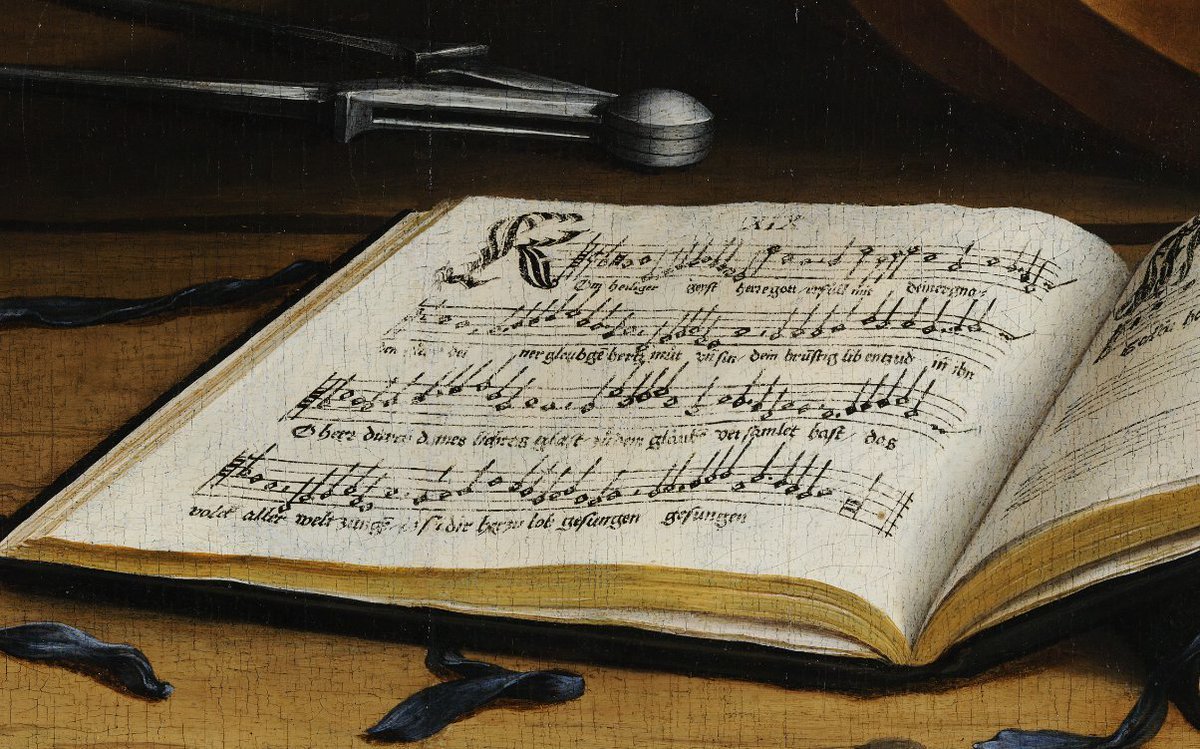 XIX
Kom heiliger geist herregott erfüll mit deiner gna=
dei ner gleubgē hertz mut vn sin dein brüstig lib entzud in ihn
O herr durch deines glast zu dem glaubē versamlet hast das
volck aller welt zungē dir herzu lob gesungen gesungen